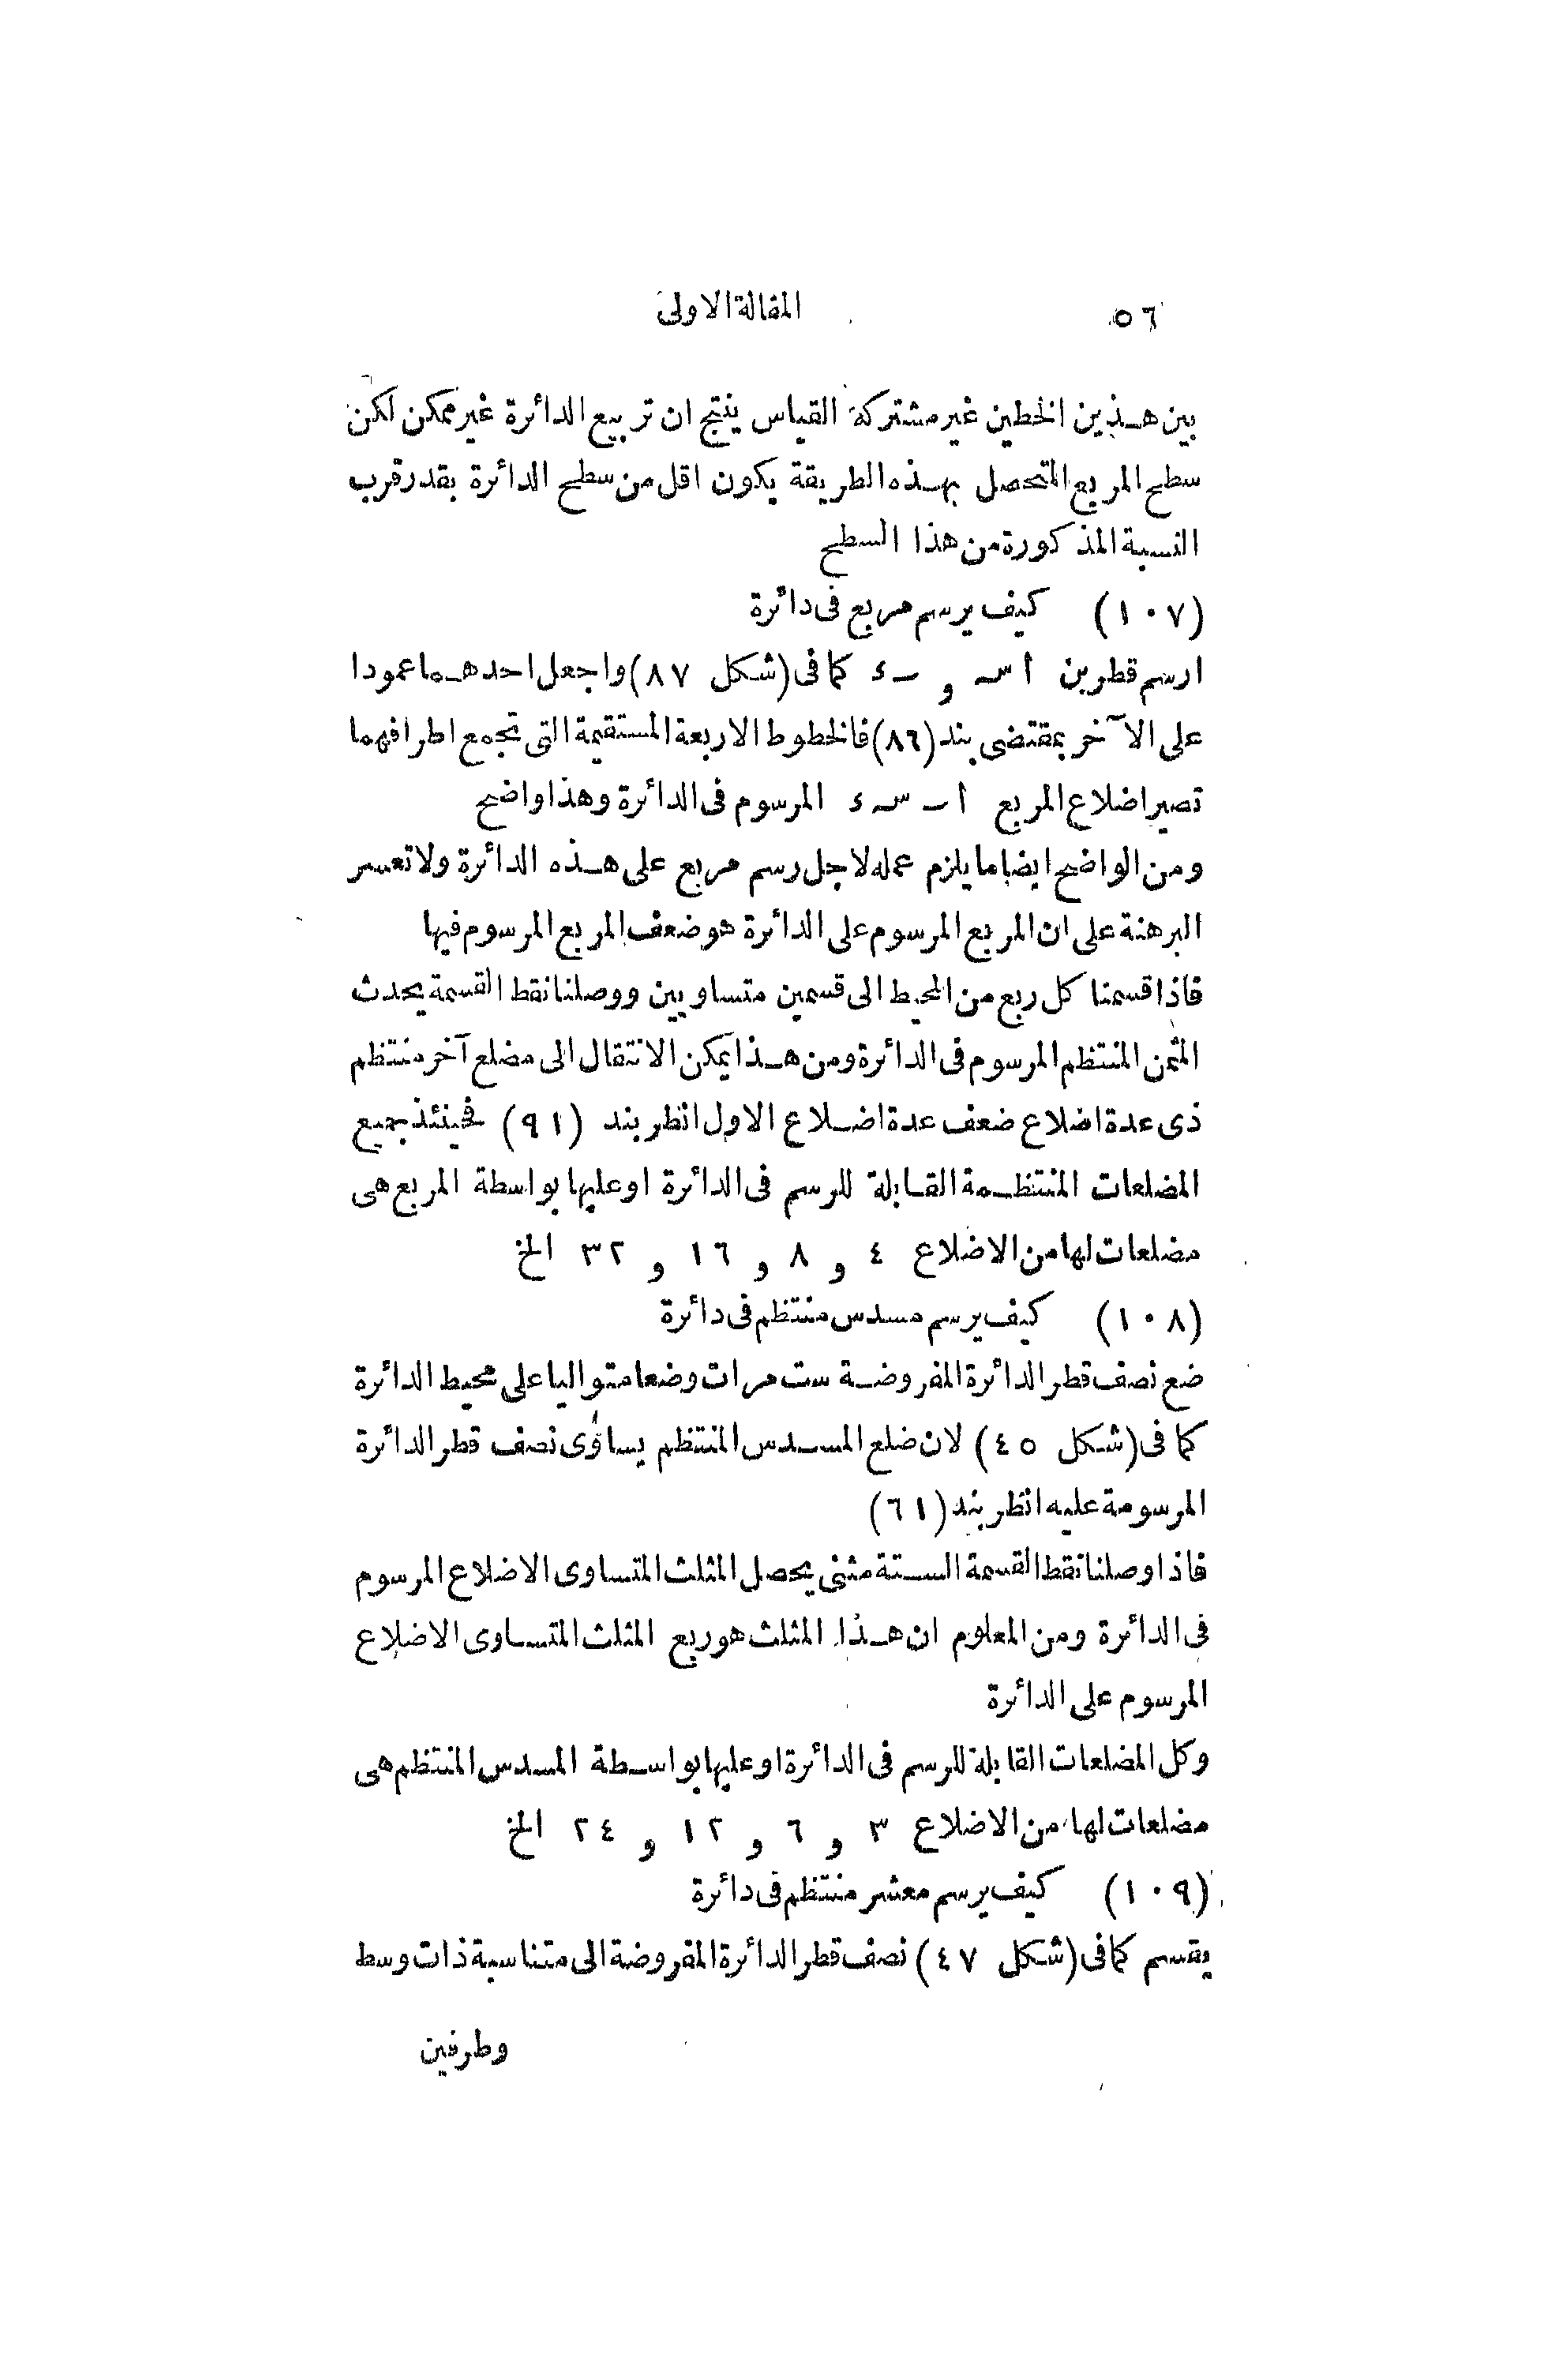 ٥٦ المقالة الاولى
بين هذين الخطين غير مشتركة القياس ينتج ان تربيع الدائرة غير ممكن لكن
سطح المربع المتحصل بهذه الطريقة يكون اقل من سطح الدائرة بقدر قرب
النسبة المذكورة من هذا السطح
(١٠٧) كيف يرسم مربع فى دائرة
ارسم قطرين ا س و ب ء كما فى (شكل ٨٧) واجعل احدهما عمودا
على الآخر بمقتضى بند (٨٦) فالخطوط الاربعة المستقيمة التى تجمع اطرافهما
تصير اضلاع المربع ا ب س ء المرسوم فى الدائرة وهذا واضح
ومن الواضح ايضا ما يلزم عمله لاجل رسم مربع على هذه الدائرة ولا تعسر
البرهنة على ان المربع المرسوم على الدائرة هو ضعف المربع المرسوم فيها
فاذا قسمنا كل ربع من المحيط الى قسمين متساويين ووصلنا نقط القسمة يحدث
المثمن المنتظم المرسوم فى الدائرة ومن هذا يمكن الانتقال الى مضلع آخر منتظم
ذى عدة اضلاع ضعف عدة اضلاع الاول انظر بند (٩١) فحينئذ جميع
المضلعات المنتظمة القابلة للرسم فى الدائرة او عليها بواسطة المربع هى
مضلعات لها من الاضلاع ٤ و ٨ و ١٦ و ٣٢ الخ
(١٠٨) كيف يرسم مسدس منتظم فى دائرة
ضع نصف قطر الدائرة المفروضة ست مرات وضعا متواليا على محيط الدائرة
كما فى (شكل ٤٥) لان ضلع المسدس المنتظم يساوى نصف قطر الدائرة
المرسومة عليه انظر بند (٦١)
فاذا وصلنا نقط القسمة الستة مثنى يحصل المثلث المتساوى الاضلاع المرسوم
فى الدائرة ومن المعلوم ان هذا المثلث هو ربع المثلث المتساوى الاضلاع
المرسوم على الدائرة
وكل المضلعات القابلة للرسم فى الدائرة او عليها بواسطة المسدس المنتظم هى
مضلعات لها من الاضلاع ٣ و ٦ و ١٢ و ٢٤ الخ
(١٠٩) كيف يرسم معشر منتظم فى دائرة
يقسم كما فى (شكل ٤٧) نصف قطر الدائرة المفروضة الى متناسبة ذات وسط
وطرفين